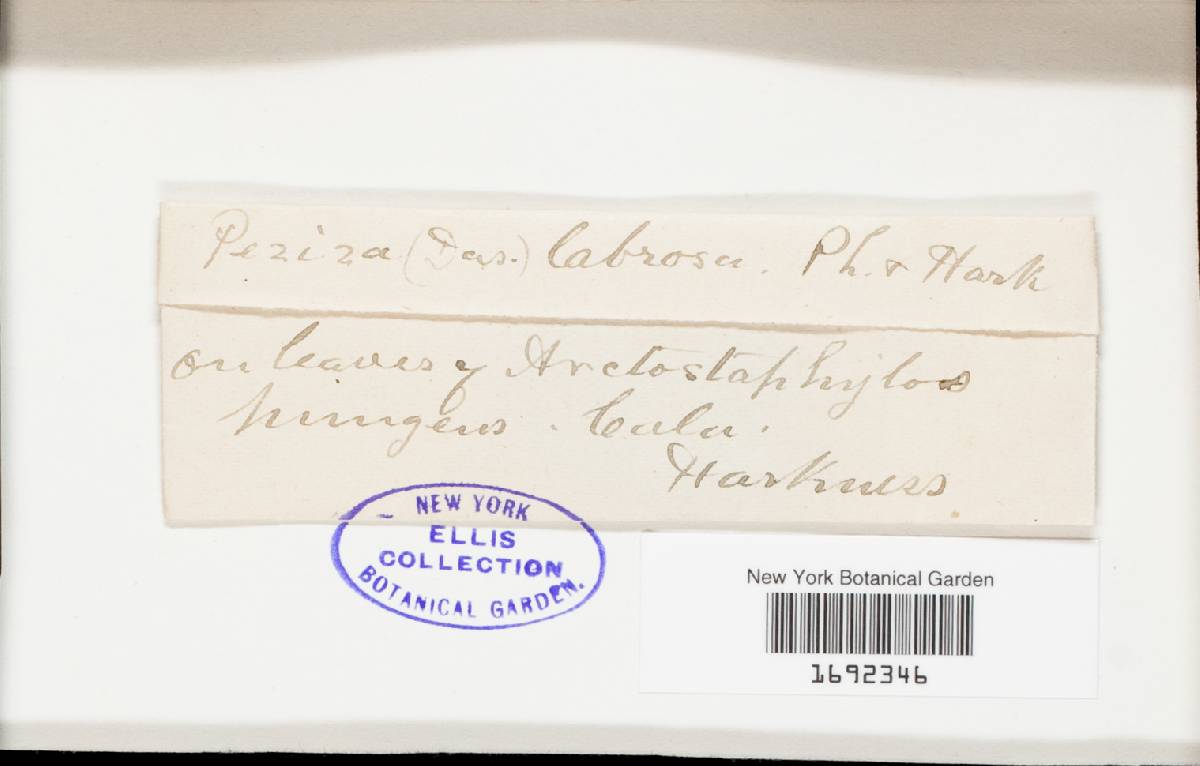 Peziza (Das.) labrosa. Ph. & Hark
on leaves of Arctostaphylos
pungens. Cala.
Harkness
NEW YORK
ELLIS
COLLECTION
BOTANICAL GARDEN.
New York Botanical Garden
1692346